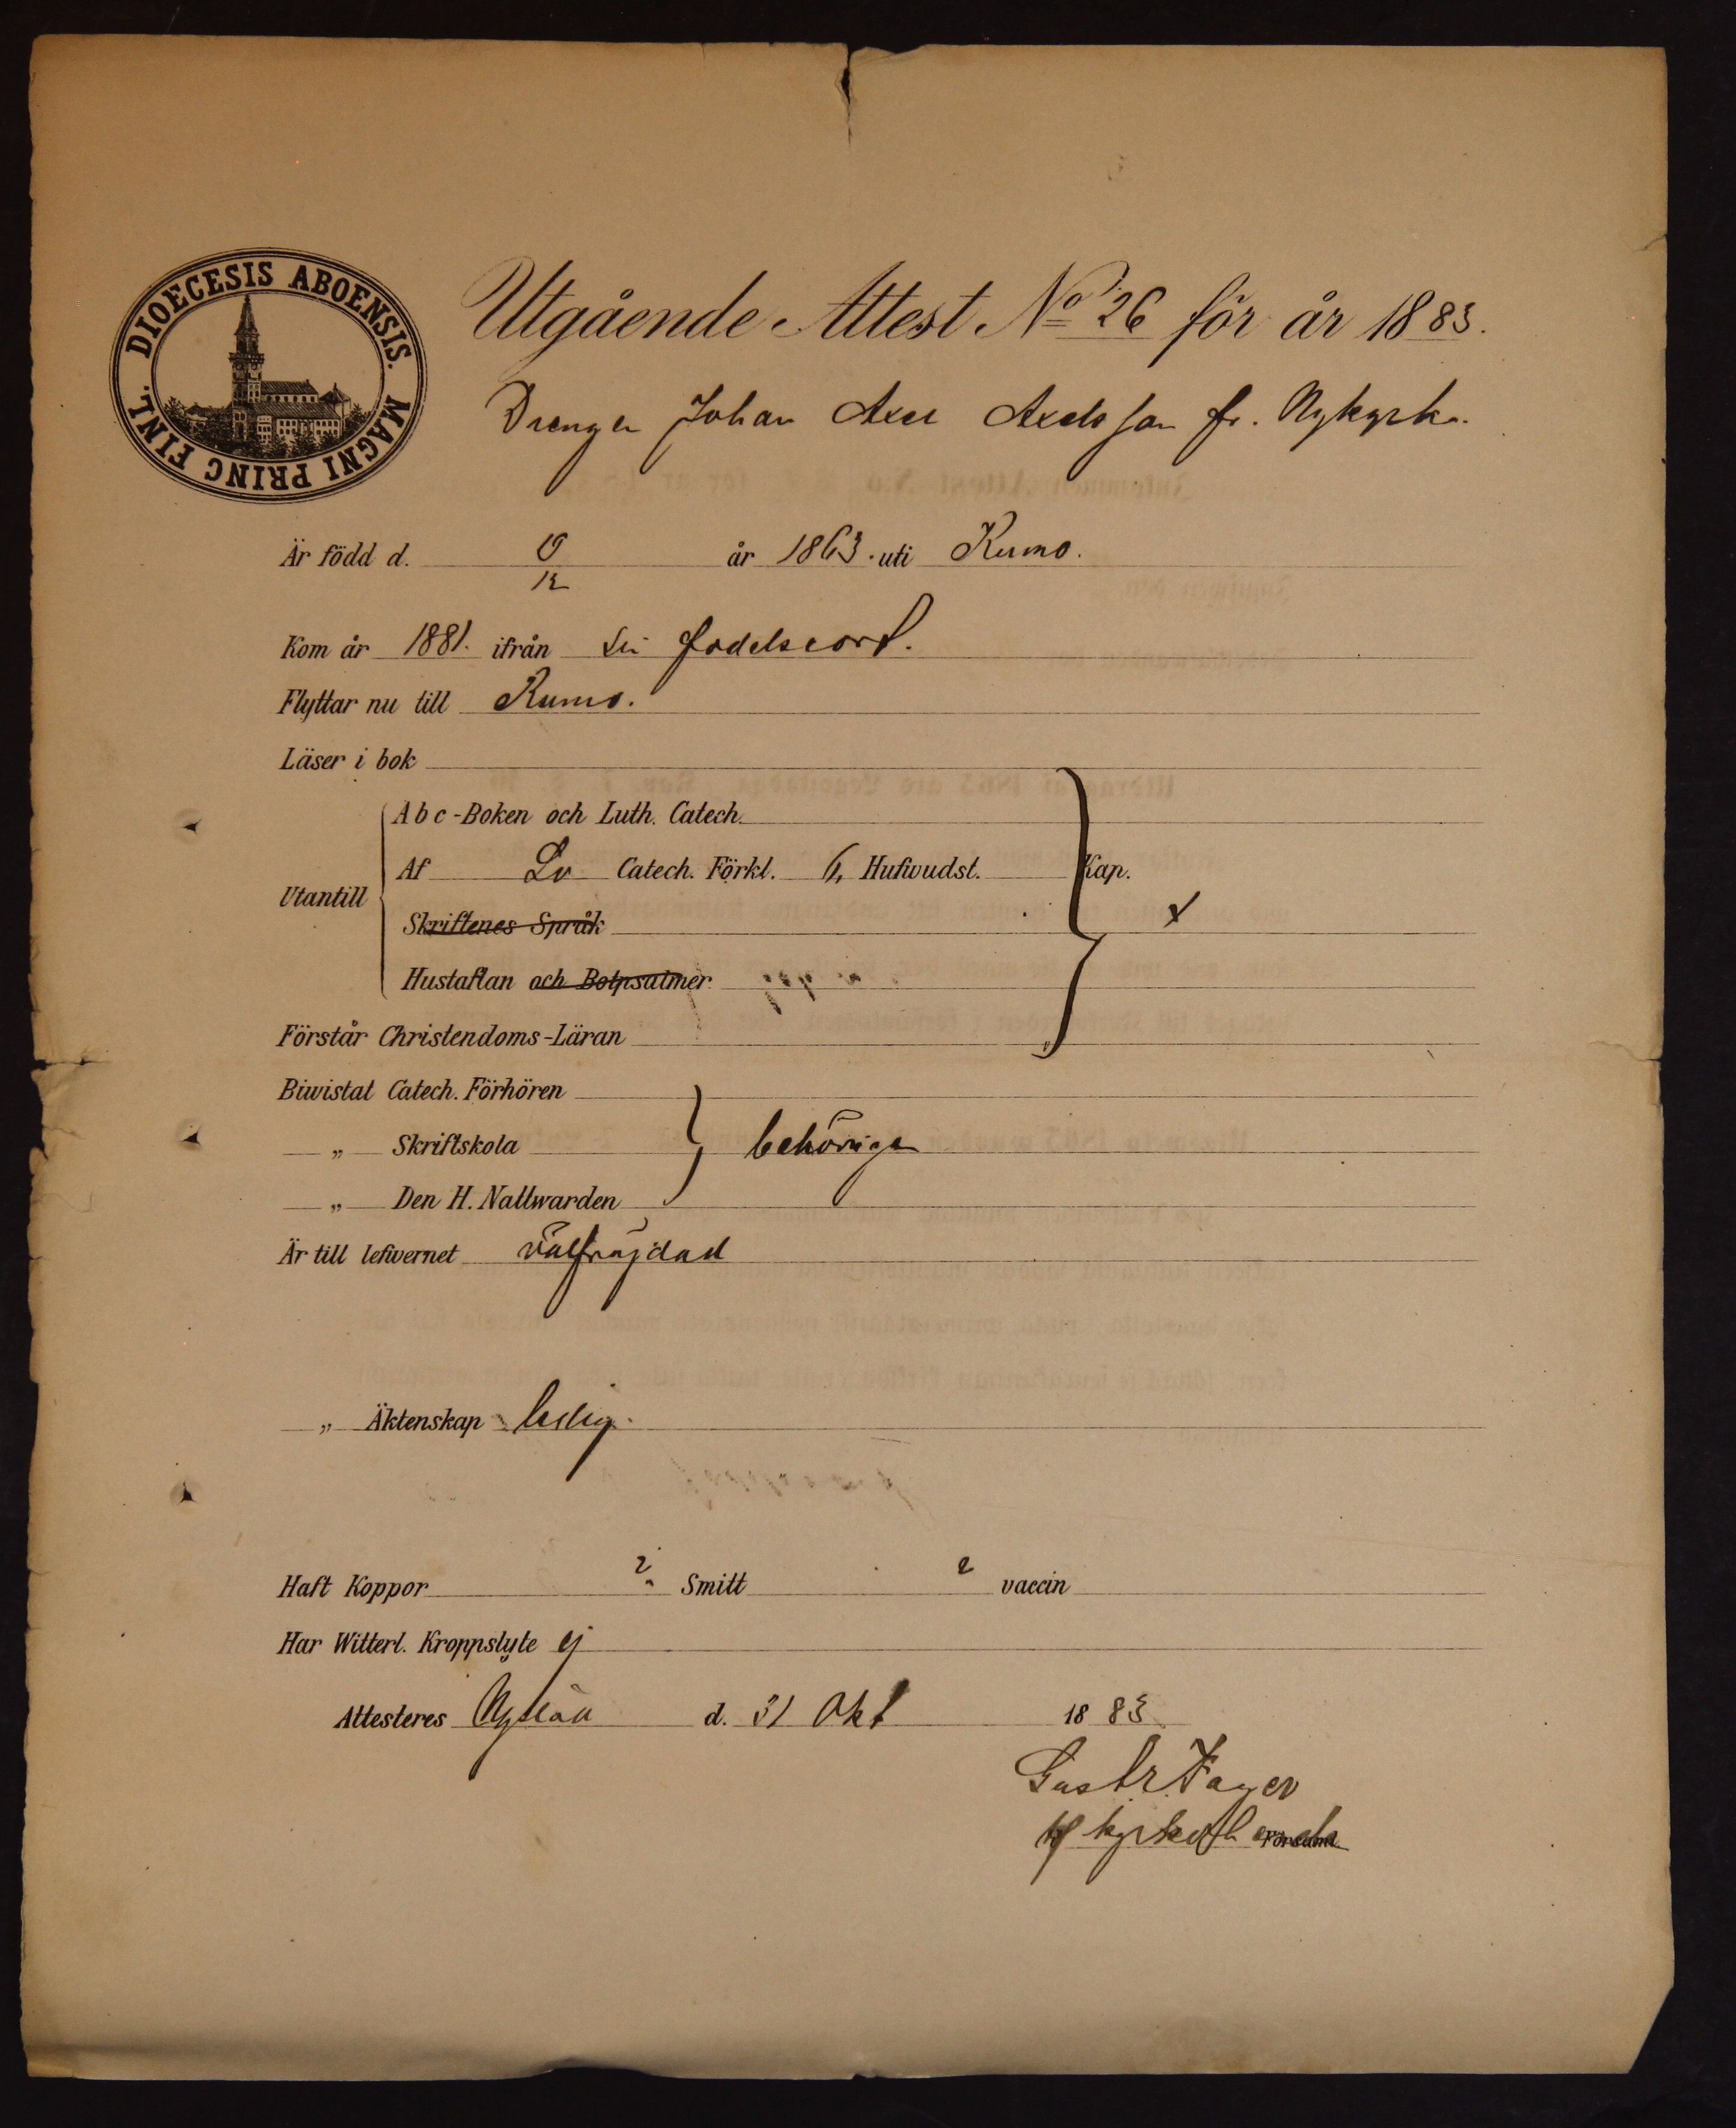 DIOECESIS ABOENSIS. MAGNI PRINC FINL.
Utgående Attest No 26 för år 1883.
Drengen Johan Axel Axelsson fr. Nykyrka.
Är född d. år 1863. uti Kumo.
12
Kom år 1881. ifrån sin födelseort.
Flyttar nu till Kumo.
Läser i bok
Utantill
Abc-Boken och Luth. Catech.
Af Catech. Förkl. Hufwudst. Kap.
Skriftenes Språk
Hustaflan och Botpsalmer
Förstår Christendoms-Läran
Biwistat Catech. Förhören
„ Skriftskola behörigen
„ Den H. Nattwarden
Är till lefwernet välfrägdad
„ Äktenskap ledig.
Haft Koppor Smitt vaccin
Har Witterl. Kroppslyte ej
Attesteres Nystad d. 31 Okt 1883
Gust. Fager
Församl.